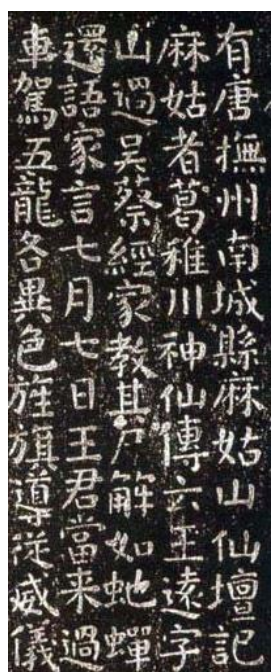 有唐撫州南城縣麻姑山仙壇記
麻姑者葛稚川神仙傳云王遠字
山過吳蔡經家教其尸解如虵蟬
還語家言七月七日王君當来過
車駕五龍各異色旌旗導從威儀